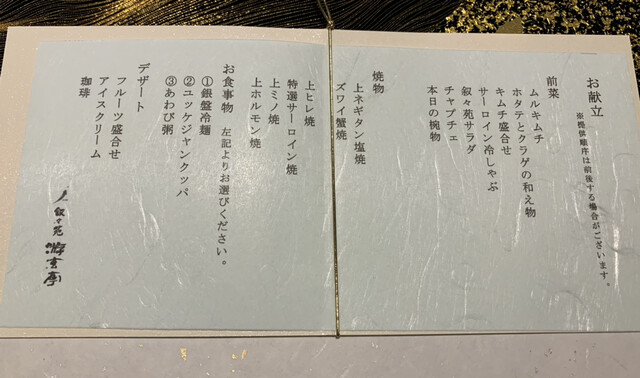 お献立
※提供順序は前後する場合がございます。
前菜
ムルキムチ
ホタテとクラゲの和え物
キムチ盛合せ
サーロイン冷しゃぶ
叙々苑サラダ
チャプチェ
本日の椀物
焼物
上ネギタン塩焼
ズワイ蟹焼
上ヒレ焼
特選サーロイン焼
上ミノ焼
上ホルモン焼
お食事物 左記よりお選びください。
①銀盤冷麺
②ユッケジャンクッパ
③あわび粥
デザート
フルーツ盛合せ
アイスクリーム
珈琲
叙々苑 游玄亭